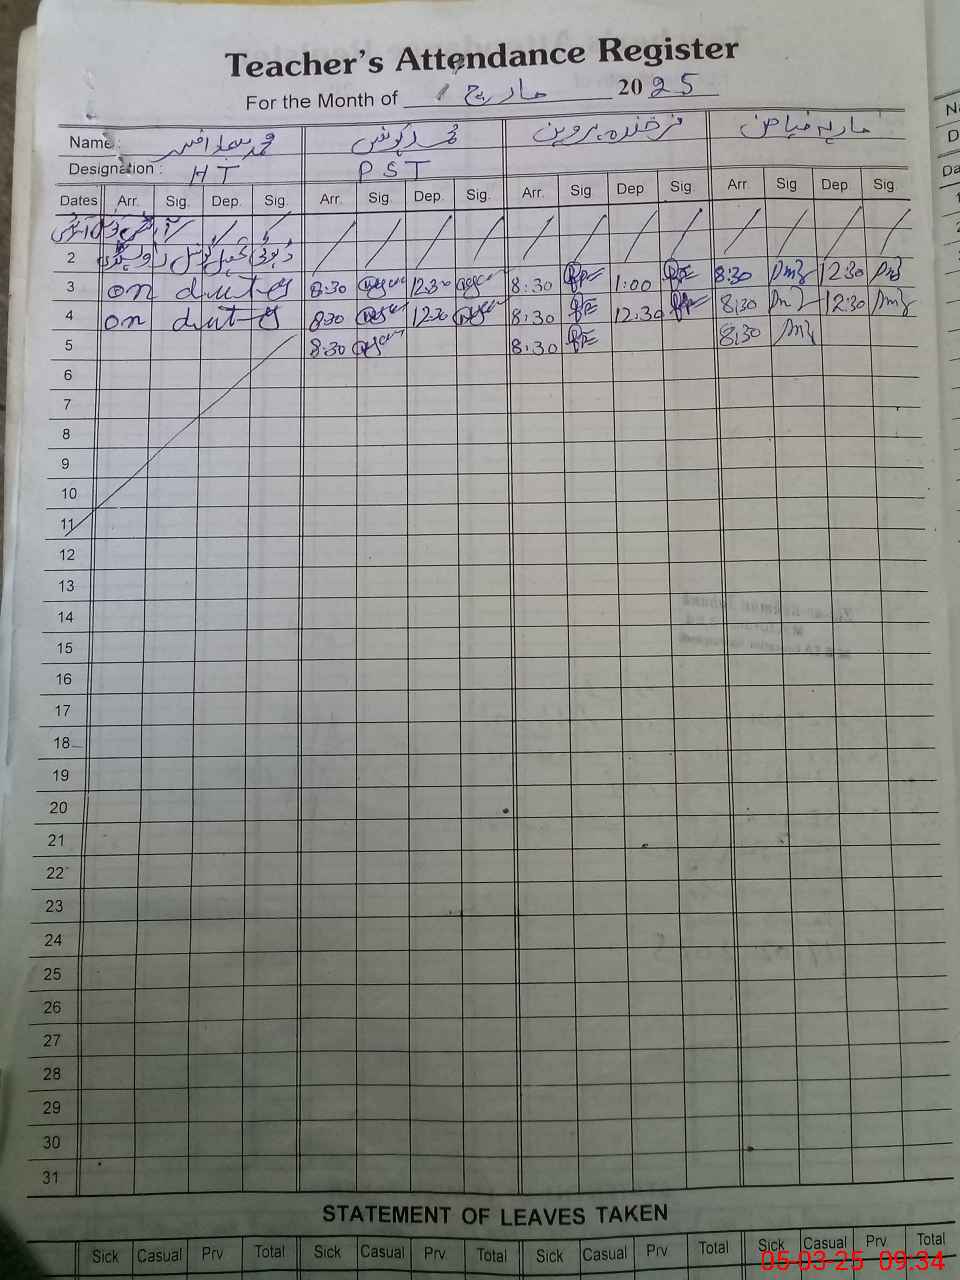 Teacher's Attendance Register
For the Month of مارچ 2025
Name : محمد یونس فرخندہ پروین ماریہ فیاض
Designation : HT PST
Dates Arr. Sig. Dep. Sig. Arr. Sig. Dep. Sig. Arr. Sig Dep Sig. Arr. Sig Dep. Sig.
2
3 on duty 8:30 12:30 8:30 1:00 8:30 12:30
4 on duty 8:30 12:30 8:30 12:30 8:30 12:30
5 8:30 8:30 8:30
6
7
8
9
10
11
12
13
14
15
16
17
18
19
20
21
22
23
24
25
26
27
28
29
30
31
STATEMENT OF LEAVES TAKEN
Sick Casual Prv Total Sick Casual Prv. Total Sick Casual Prv Total Sick Casual Prv Total
05-03-25 09:34